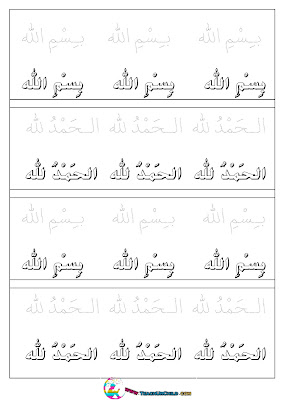 بِسْمِ الله بِسْمِ الله بِسْمِ الله
بِسْمِ الله بِسْمِ الله بِسْمِ الله
الحَمْدُ لله الحَمْدُ لله الحَمْدُ لله
الحَمْدُ لله الحَمْدُ لله الحَمْدُ لله
بِسْمِ الله بِسْمِ الله بِسْمِ الله
بِسْمِ الله بِسْمِ الله بِسْمِ الله
الحَمْدُ لله الحَمْدُ لله الحَمْدُ لله
الحَمْدُ لله الحَمْدُ لله الحَمْدُ لله